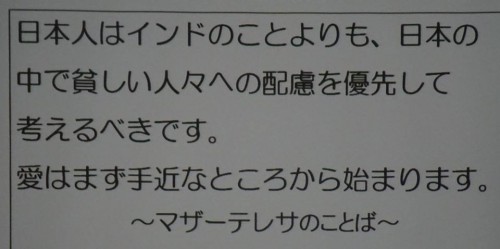 日本人はインドのことよりも、日本の
中で貧しい人々への配慮を優先して
考えるべきです。
愛はまず手近なところから始まります。
～マザーテレサのことば～